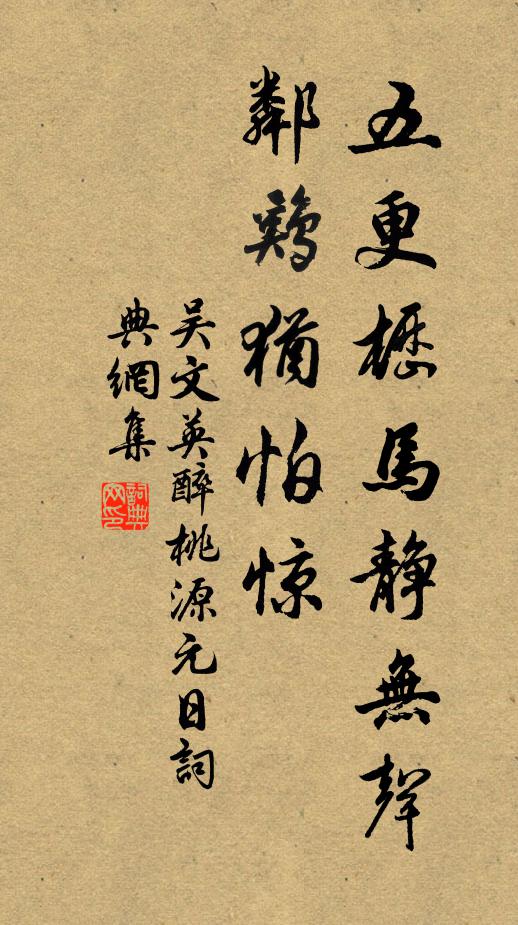 五更櫪馬靜無聲
鄰鷄猶怕惊
吴文英醉桃源元日詞
典網集
詞典网印